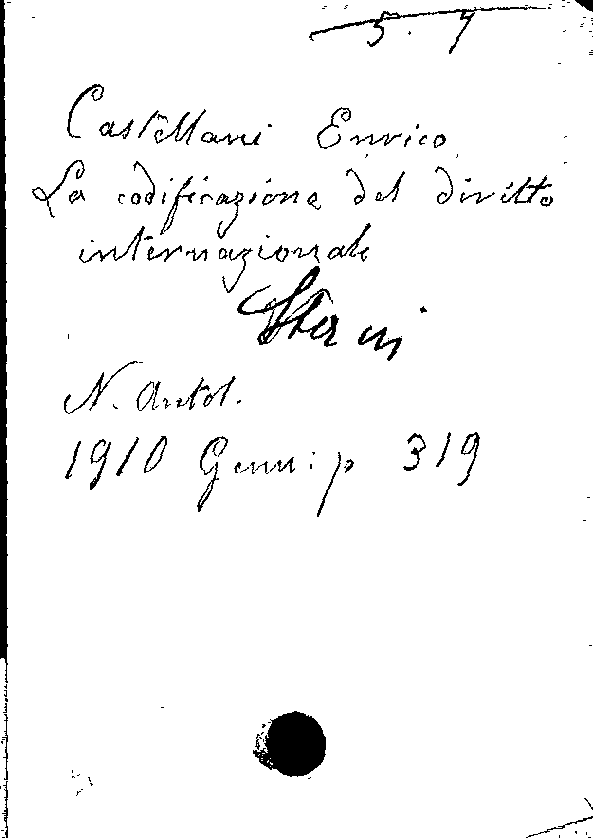 5. 7
Castellani Enrico
La codificazione del diritto
internazionale
N. Antol.
1910 Genn: p 319